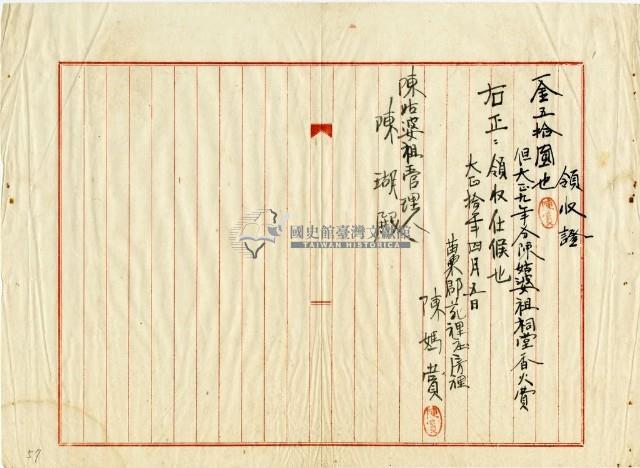 領收證
一金五拾圓也
但大正九年分陳姑婆祖祠堂香火費
右正ニ領收仕候也
大正拾年四月五日
苗栗郡苑裡庄房裡
陳媽賞
陳姑婆祖管理人
陳瑚殿
國史館臺灣文獻館
TAIWAN HISTORICA
57